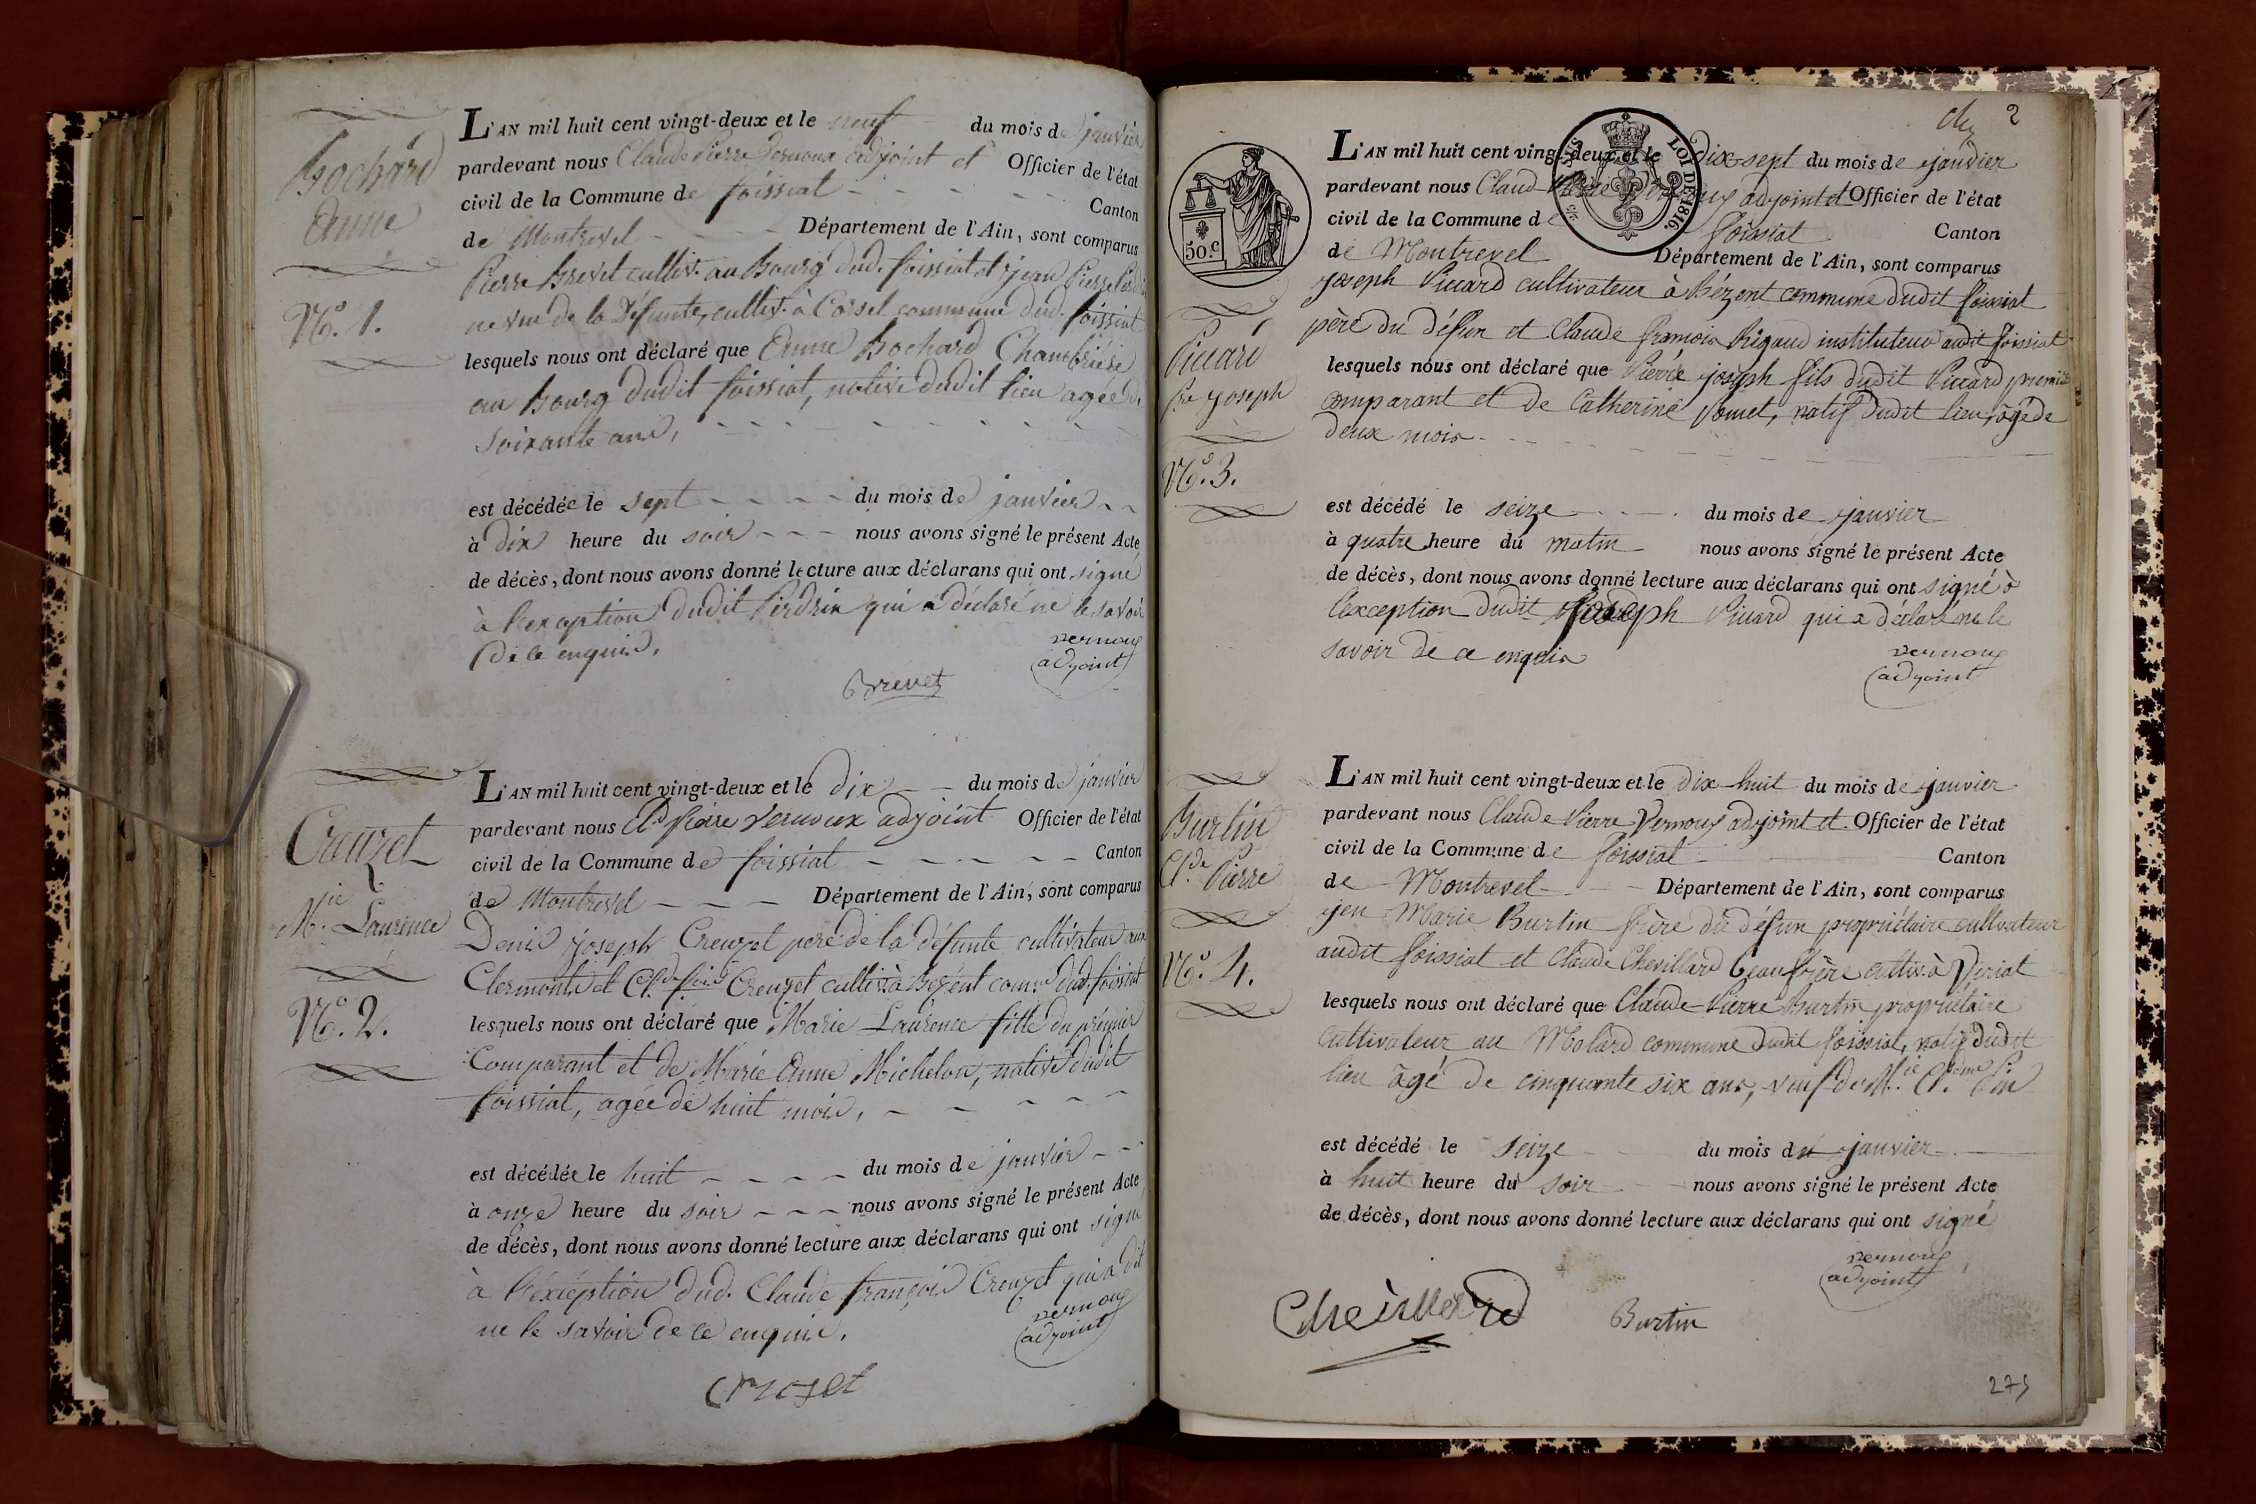 Bochard
Anne
N.o 1.
L'AN mil huit cent vingt-deux et le neuf du mois de janvier
pardevant nous Claude Pierre Vernoux adjoint et Officier de l'état
civil de la Commune de foissiat Canton
de Montrevel Département de l'Ain, sont comparus
Pierre Brevet cultiv. au Bourg dud. foissiat et jean Pierre
neveu de la Défunte, cultiv. à Corsel commune dud. foissiat
lesquels nous ont déclaré que Anne Bochard Chambrière
au Bourg dudit foissiat, native dudit lieu agée de
soixante ans,
est décédée le sept du mois de janvier
à dix heure du soir nous avons signé le présent Acte
de décès, dont nous avons donné lecture aux déclarans qui ont signé
à l'exception dudit Perdrix qui a déclaré ne le savoir
de ce enquis.
vernoux
adjoint
Brevet
Creuzet
M.ie Laurence
N.o 2.
L'AN mil huit cent vingt-deux et le dix du mois de janvier
pardevant nous Cl.d Pierre Vernoux adjoint Officier de l'état
civil de la Commune de foissiat Canton
de Montrevel Département de l'Ain, sont comparus
Denis joseph Creuzet pere de la défunte cultivateur aux
Clermonts et Cl.d fois Creuzet cultiv. à Bezent com.ne dud. foissiat
lesquels nous ont déclaré que Marie Laurence fille du prémier
Comparant et de Marie Anne Michelon, native dudit
foissiat, agée de huit mois,
est décédée le huit du mois de janvier
à onze heure du soir nous avons signé le présent Acte
de décès, dont nous avons donné lecture aux déclarans qui ont signé
à l'éxéption dud. Claude françois Creuzet qui a dit
ne le savoir de ce enquis.
vernoux
adjoint
Creuzet
2
LOI DE 1816.
50.c
Picard
P.re joseph
N.o 3.
L'AN mil huit cent vingt-deux et le dix-sept du mois de janvier
pardevant nous Claude Pierre Vernoux adjoint et Officier de l'état
civil de la Commune de foissiat Canton
de Montrevel Département de l'Ain, sont comparus
joseph Picard cultivateur à Bézent commune dudit foissiat
père du défun et Claude françois Rigaud instituteur audit foissiat
lesquels nous ont déclaré que Pierre joseph fils dudit Picard premier
comparant et de Catherine Pomet, natif dudit lieu, âgé de
deux mois
est décédé le seize du mois de janvier
à quatre heure du matin nous avons signé le présent Acte
de décès, dont nous avons donné lecture aux déclarans qui ont signé à
l'exception dudit joseph Picard qui a déclaré ne le
savoir de ce enquis
vernoux
adjoint
Burtin
Cl.de Pierre
N.o 4.
L'AN mil huit cent vingt-deux et le dix-huit du mois de janvier
pardevant nous Claude Pierre Vernoux adjoint et Officier de l'état
civil de la Commune de foissiat Canton
de Montrevel Département de l'Ain, sont comparus
jen Marie Burtin frère du défun propriétaire cultivateur
audit foissiat et Claude Chevillard beaufrère cultiv. à Viriat
lesquels nous ont déclaré que Claude-Pierre Burtin propriétaire
cultivateur au Molard commune dudit foissiat, natif dudit
lieu âgé de cinquante six ans, veuf de M.ie Cl.dine Pin
est décédé le seize du mois de janvier
à huit heure du soir nous avons signé le présent Acte
de décès, dont nous avons donné lecture aux déclarans qui ont signé
vernoux
adjoint
Chevillard
Burtin
275